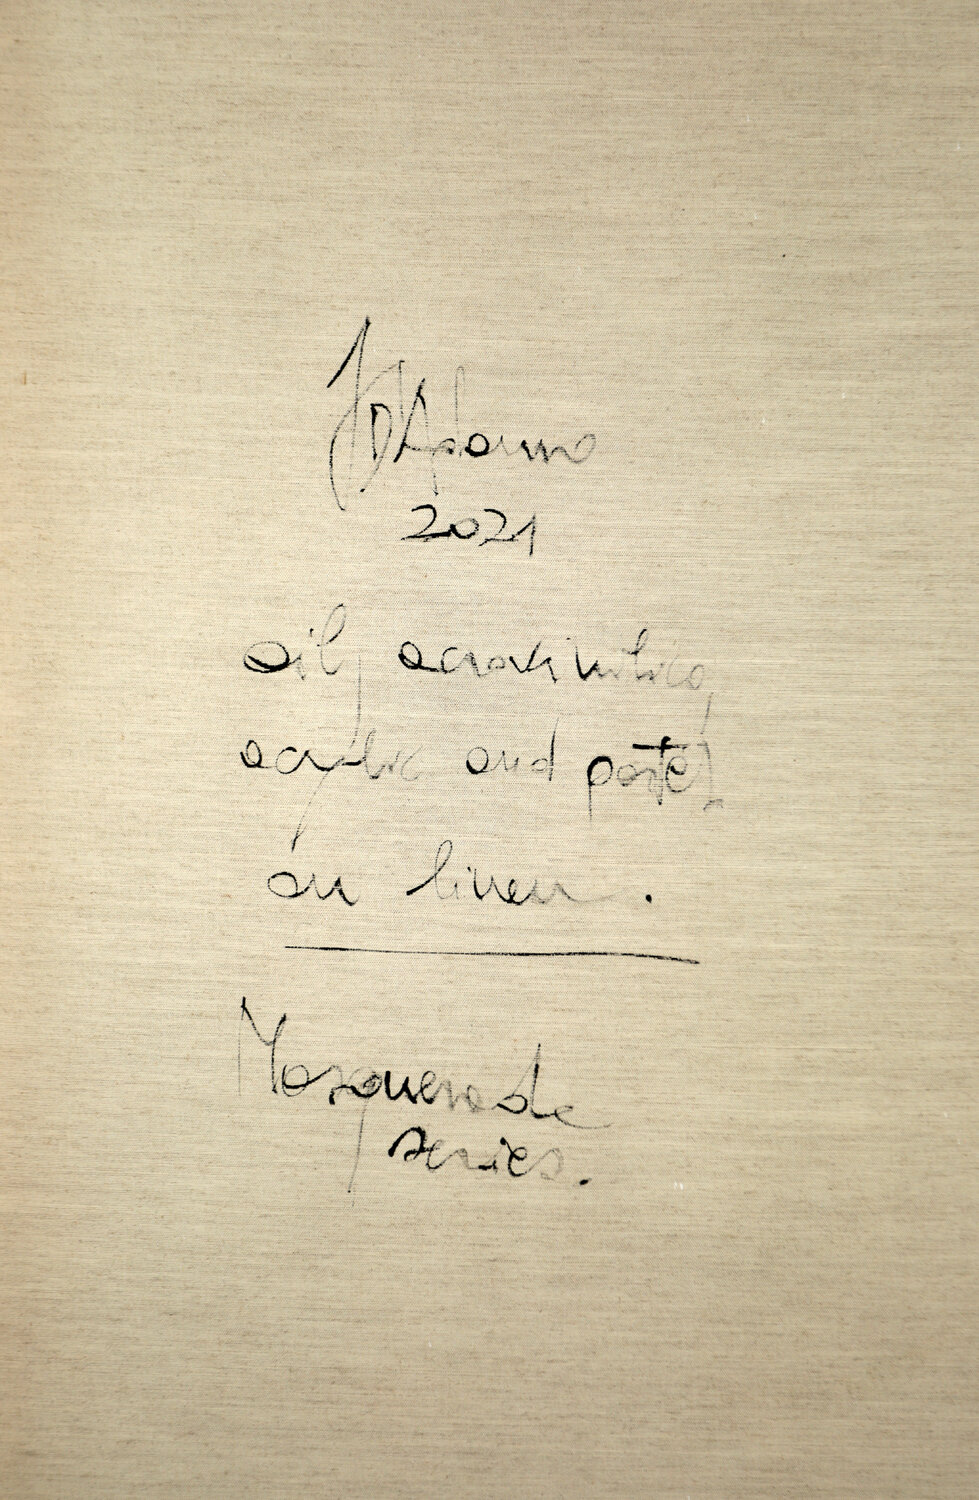 D'Adamo
2021
oil, acrovinilico,
acrylic and pastel
on linen.
Masquerade
series.